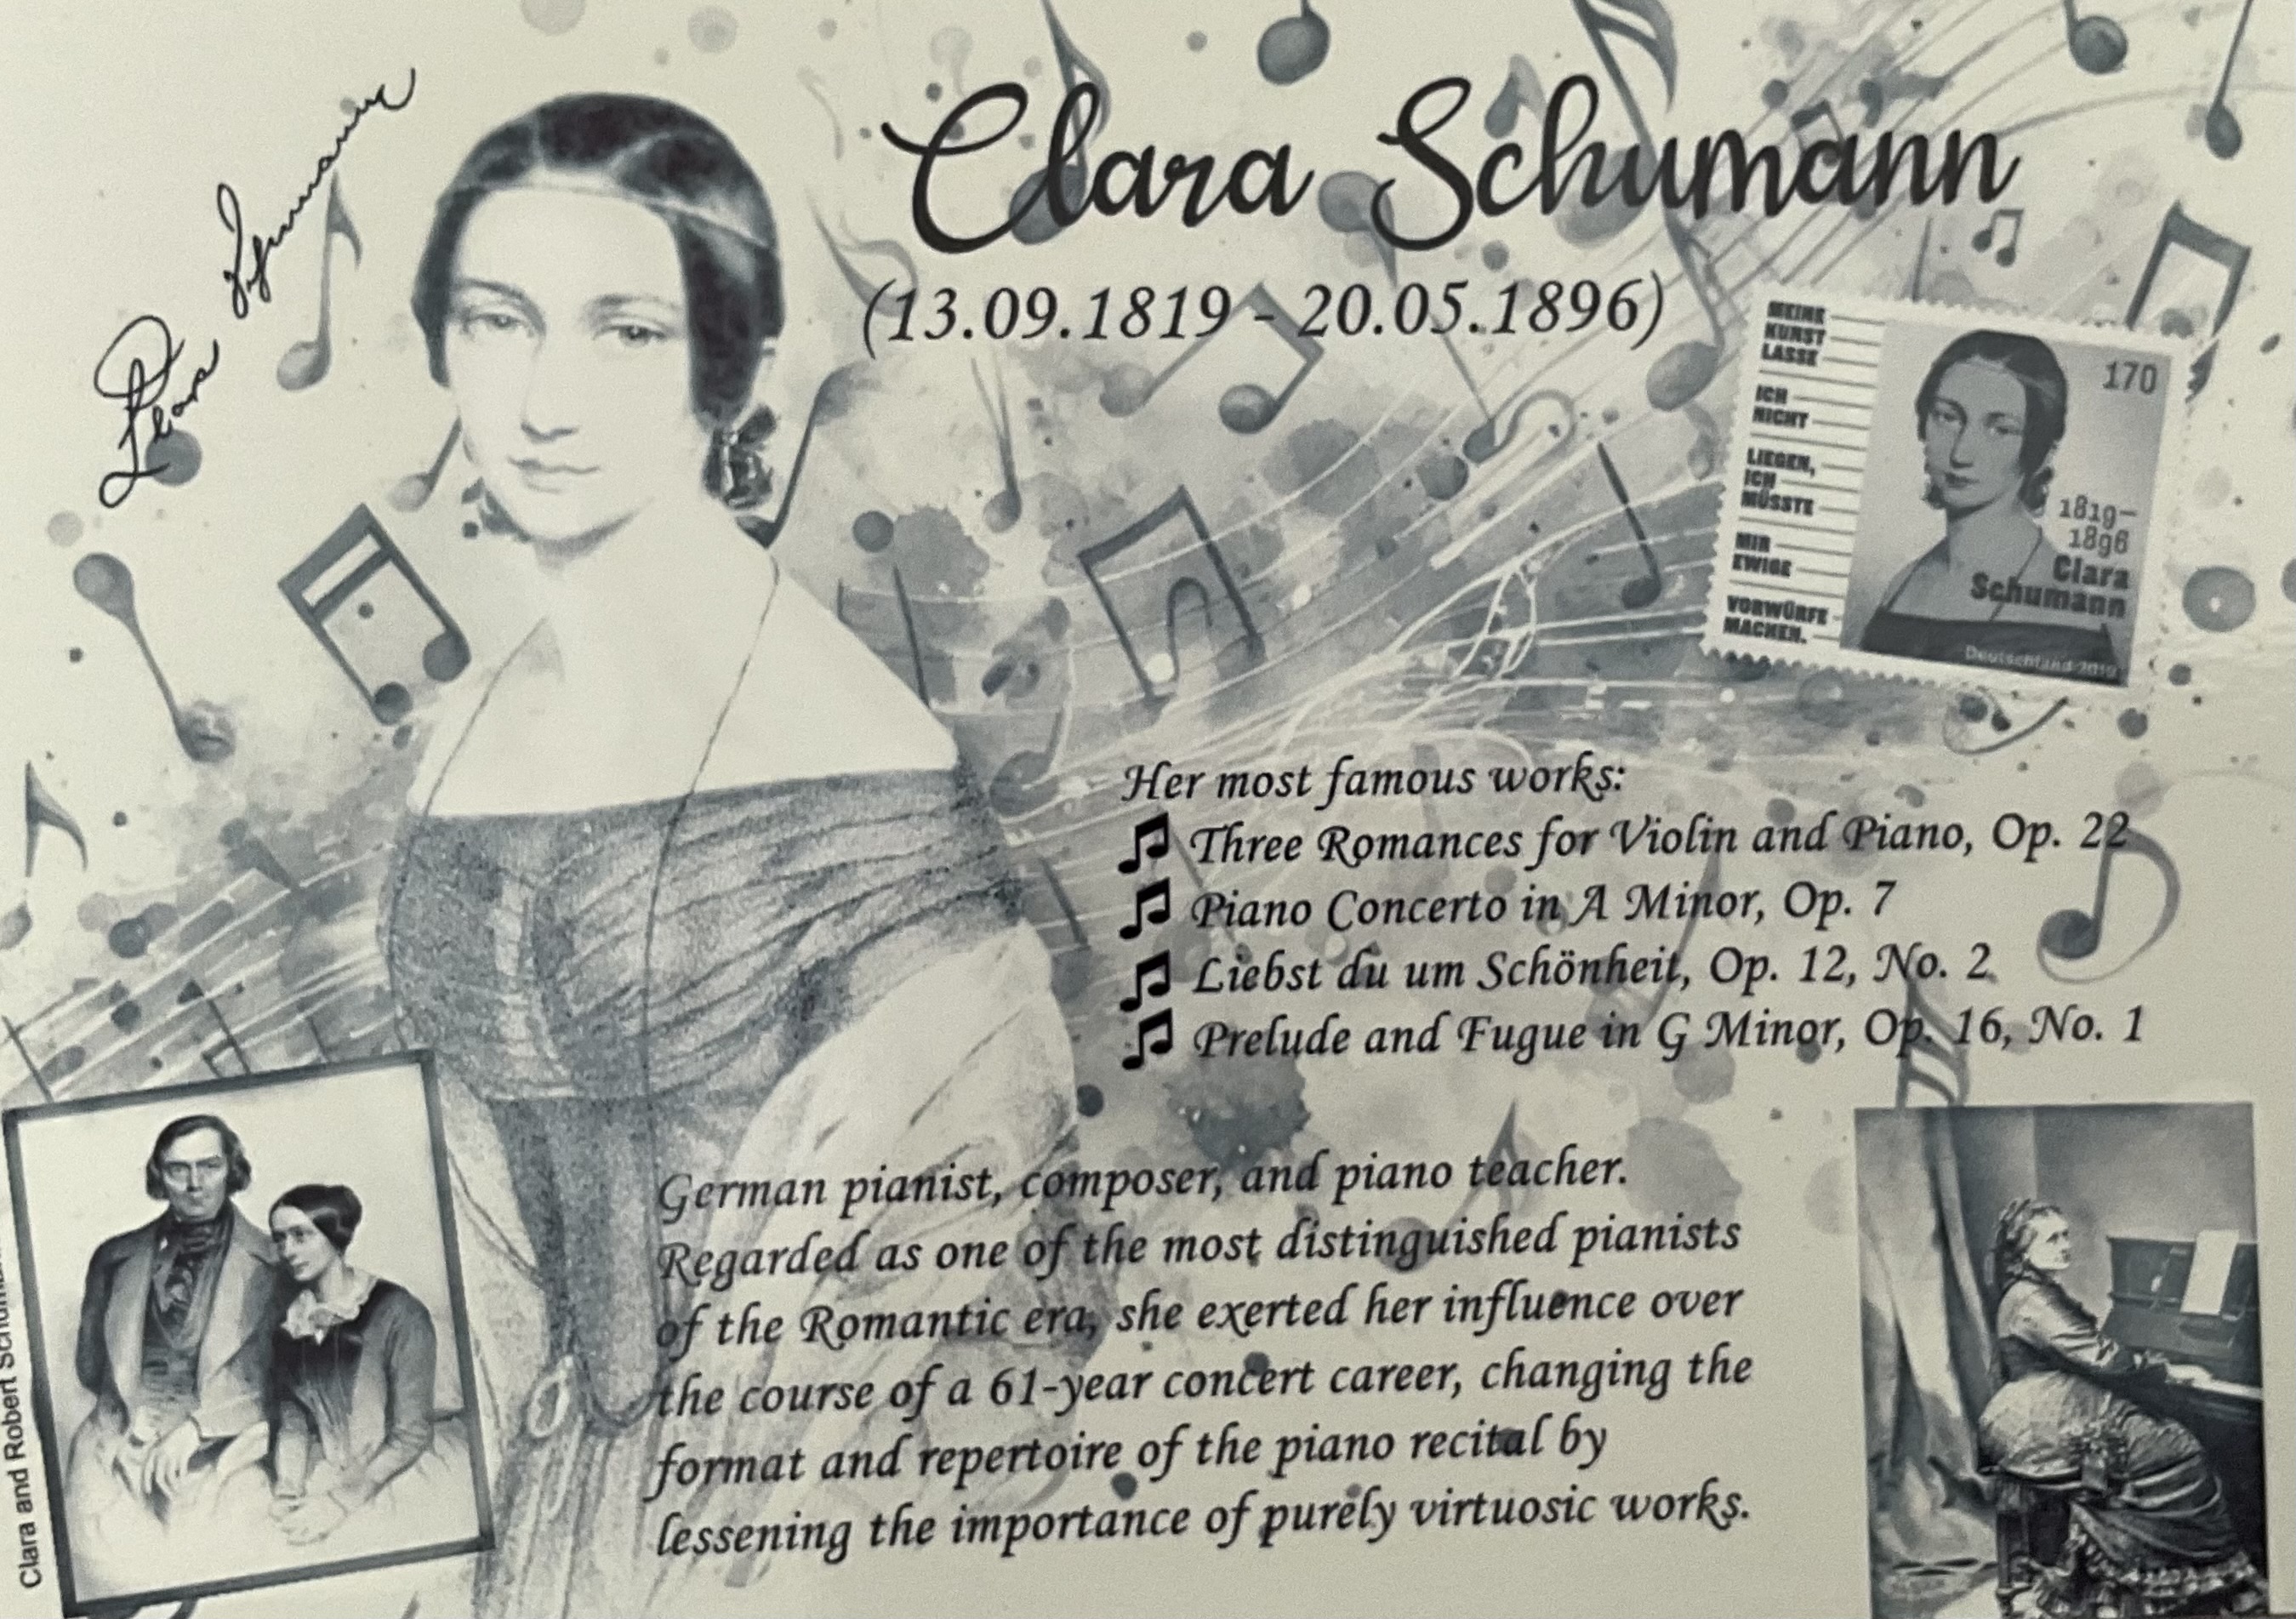 Clara Schumann
Clara Schumann
(13.09.1819 - 20.05.1896)
MEINE
KUNST
LASSE
ICH
NICHT
LIEGEN,
ICH
MÜSSTE
MIR
EWIGE
VORWÜRFE
MACHEN.
170
1819–
1896
Clara
Schumann
Deutschland 2019
Her most famous works:
Three Romances for Violin and Piano, Op. 22
Piano Concerto in A Minor, Op. 7
Liebst du um Schönheit, Op. 12, No. 2
Prelude and Fugue in G Minor, Op. 16, No. 1
German pianist, composer, and piano teacher.
Regarded as one of the most distinguished pianists
of the Romantic era, she exerted her influence over
the course of a 61-year concert career, changing the
format and repertoire of the piano recital by
lessening the importance of purely virtuosic works.
Clara and Robert